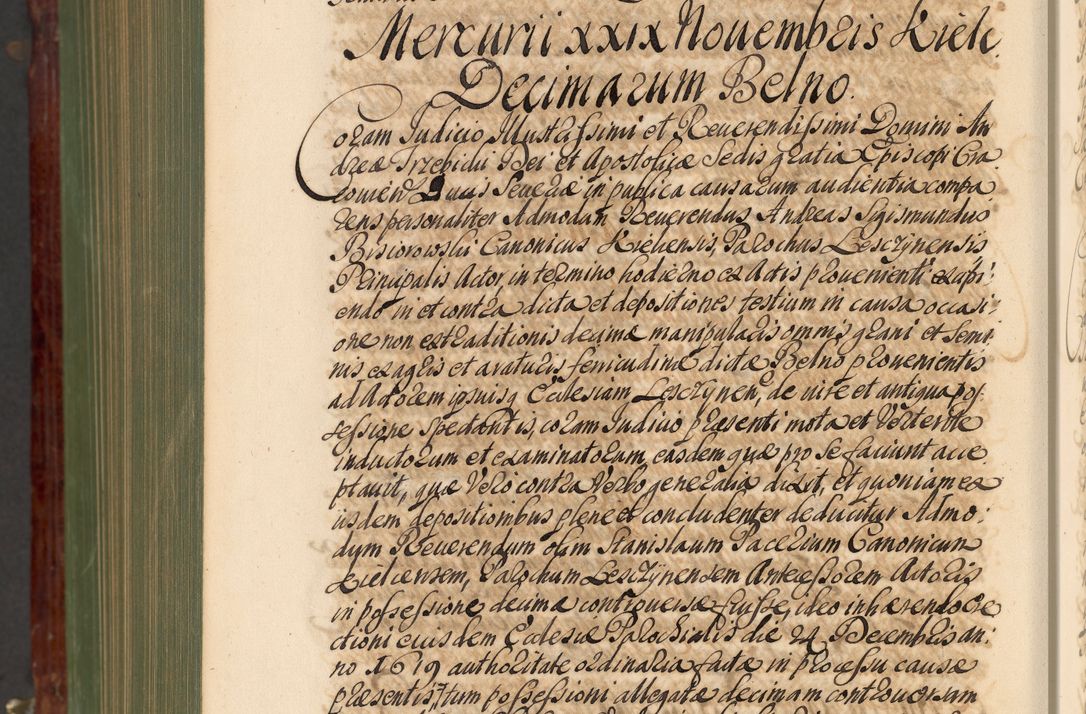 Mercurii XXIX Nouembris Kielc.
Decimarum Belno.
Coram Iudicio Illustrissimi et Reuerendissimi Domini An
dreæ Trzebicki Dei et Apostolicæ Sedis gratia Episcopi Cra
couien Ducis Seueriæ in publica causarum audientia compa
rens personaliter Admodum Reuerendus Andreas Sigismundus
Canonicus Kielcensis, Parochus Lesczynensis
Principalis Actor, in termino hodierno ex Actis prouenienti excipi
endo in et contra dicta et depositiones testium in causa occasi
one non extraditionis decimæ manipularis omnis grani et semi
nis ex agris et araturis fenicudinæ dictæ Belno prouenientis
ad Actorem ipsiusq Ecclesiam Lesczynen, de iure et antiqua pos
sessione spectantis, coram Iudicio præsenti mota et vertente
inductorum et examinatorum, easdem quæ pro se faciunt acce
ptauit, quæ Vero contra Verbo generalia dixit, et quoniam ex
iisdem depositionibus plene et concludenter deducitur Admo
dum Reuerendum olim Stanislaum Pacerium Canonicum
Kielcensem, Parochum Lesczynensem Antecessorem Actoris
in possessione decimæ controuersæ fuisse, ideo inhærendo Ere
ctioni eiusdem Ecclesiæ Parochialis die 24 Decembris an
no 1679 authoritate ordinaria factæ in processu causæ
præsentis, tum possessioni allegatæ decimam controuersam